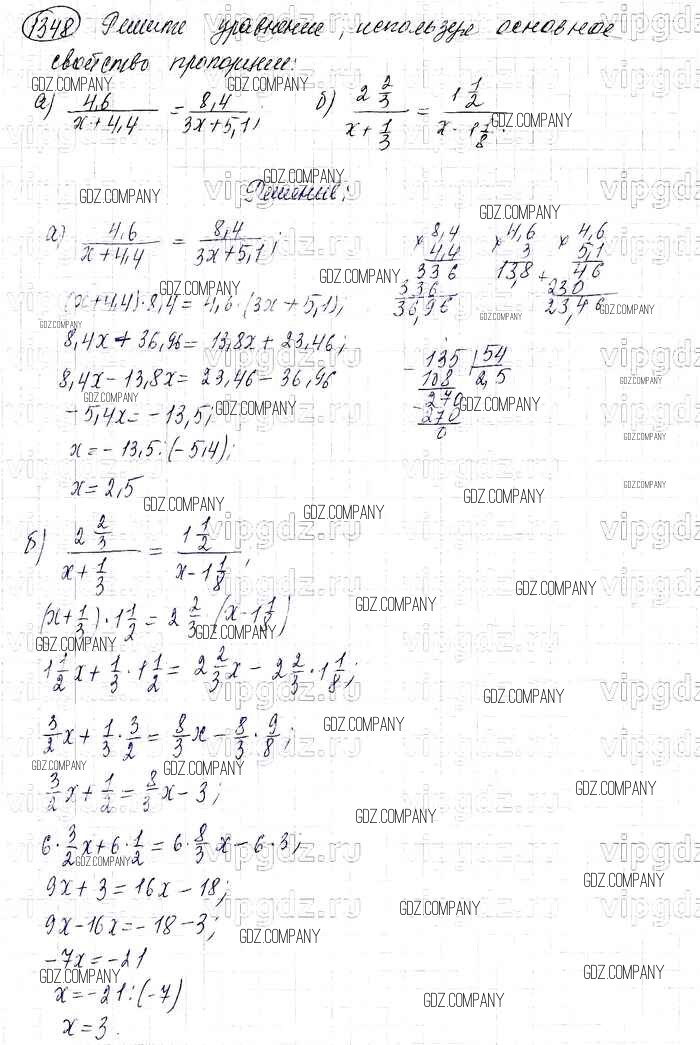 1348 Решите уравнение, используя основное
свойство пропорции:
а) 4,6/(x+4,4) = 8,4/(3x+5,1); б) 2 2/3/(x+1/3) = 1 1/2/(x-1 1/8).
Решение:
а) 4,6/(x+4,4) = 8,4/(3x+5,1);
(x+4,4)·8,4=4,6·(3x+5,1);
8,4x+36,96=13,8x+23,46;
8,4x-13,8x=23,46-36,96
-5,4x=-13,5;
x=-13,5:(-5,4);
x=2,5
× 8,4
4,4
336
336
36,96
× 4,6
3
13,8
× 4,6
5,1
+ 46
230
23,46
- 135 | 54
108 | 2,5
- 270
270
0
б) 2 2/3/(x+1/3) = 1 1/2/(x-1 1/8);
(x+1/3)·1 1/2=2 2/3·(x-1 1/8)
1 1/2x+1/3·1 1/2=2 2/3x-2 2/3·1 1/8;
3/2x+1/3·3/2=8/3x-8/3·9/8;
3/2x+1/2=8/3x-3;
6·3/2x+6·1/2=6·8/3x-6·3;
9x+3=16x-18;
9x-16x=-18-3;
-7x=-21
x=-21:(-7)
x=3.
GDZ.COMPANY
vipgdz.ru